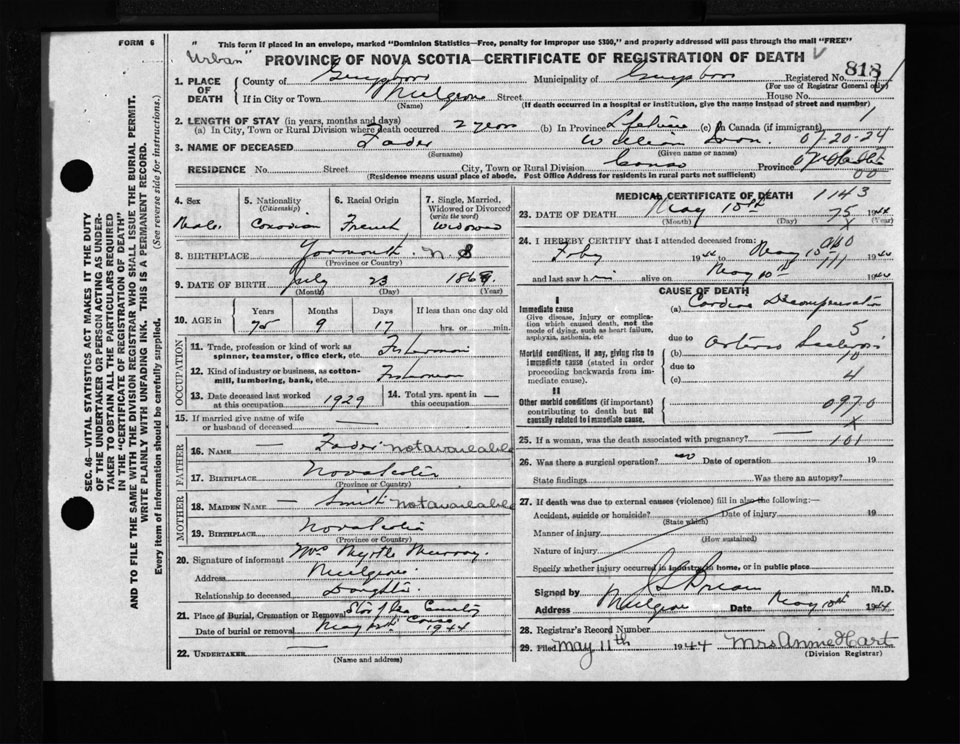 FORM 6
"This form if placed in an envelope, marked "Dominion Statistics—Free, penalty for improper use $300," and properly addressed will pass through the mail "FREE"
"Urban"
PROVINCE OF NOVA SCOTIA—CERTIFICATE OF REGISTRATION OF DEATH
1. PLACE OF DEATH
County of Guysboro Municipality of Guysboro Registered No. 818
(For use of Registrar General only)
If in City or Town Mulgrave Street House No.
(Name) (If death occurred in a hospital or institution, give the name instead of street and number)
2. LENGTH OF STAY (in years, months and days)
(a) In City, Town or Rural Division where death occurred 2 years (b) In Province Lifetime (c) In Canada (if immigrant)
07-20-24
3. NAME OF DECEASED Fader William
(Surname) (Given name or names)
RESIDENCE No. Street City, Town or Rural Division Canso Province
(Residence means usual place of abode. Post Office Address for residents in rural parts not sufficient)
4. Sex
Male
5. Nationality (Citizenship)
Canadian
6. Racial Origin
French
7. Single, Married, Widowed or Divorced (write the word)
Widowed
8. BIRTHPLACE Yarmouth. N.S
(Province or Country)
9. DATE OF BIRTH July 23 1868
(Month) (Day) (Year)
10. AGE in Years Months Days If less than one day old
75 9 17 hrs. or min.
OCCUPATION
11. Trade, profession or kind of work as spinner, teamster, office clerk, etc. Fisherman
12. Kind of industry or business, as cotton-mill, lumbering, bank, etc. Fisherman
13. Date deceased last worked at this occupation 1929
14. Total yrs. spent in this occupation —
15. If married give name of wife or husband of deceased —
FATHER
16. NAME Fader not available
17. BIRTHPLACE Nova Scotia
(Province or Country)
MOTHER
18. MAIDEN NAME — Smith not available
19. BIRTHPLACE Nova Scotia
(Province or Country)
20. Signature of informant Mrs Myrtle Murray.
Address Mulgrave
Relationship to deceased Daughter
21. Place of Burial, Cremation or Removal Star of Sea Cemetery
Canso
Date of burial or removal May 1944
22. UNDERTAKER —
(Name and address)
MEDICAL CERTIFICATE OF DEATH
1143
23. DATE OF DEATH May 10th 1944
75
(Month) (Day) (Year)
24. I HEREBY CERTIFY that I attended deceased from:
Feby 1944 to May 10th 1944
and last saw him alive on May 10th 1944
111
CAUSE OF DEATH
I
Immediate cause
Give disease, injury or complication which caused death, not the mode of dying, such as heart failure, asphyxia, asthenia, etc
(a) Cardiac Decompensation
5
due to
Morbid conditions, if any, giving rise to immediate cause (stated in order proceeding backwards from immediate cause).
(b) Arterio Sclerosis
10
due to
(c) 4
II
Other morbid conditions (if important) contributing to death but not causally related to immediate cause.
0970
X
25. If a woman, was the death associated with pregnancy? — 101
26. Was there a surgical operation? no Date of operation 19
State findings Was there an autopsy?
27. If death was due to external causes (violence) fill in also the following:—
Accident, suicide or homicide? Date of injury 19
(State which)
Manner of injury
(How sustained)
Nature of injury
Specify whether injury occurred in industry, in home, or in public place
Signed by M.D.
Address Mulgrave Date May 10th 1944
28. Registrar's Record Number
29. Filed May 11th 1944 Mrs Annie Hart
(Division Registrar)
SEC. 46—VITAL STATISTICS ACT MAKES IT THE DUTY OF THE UNDERTAKER OR PERSON ACTING AS UNDERTAKER TO OBTAIN ALL THE PARTICULARS REQUIRED IN THE "CERTIFICATE OF REGISTRATION OF DEATH" AND TO FILE THE SAME WITH THE DIVISION REGISTRAR WHO SHALL ISSUE THE BURIAL PERMIT.
WRITE PLAINLY WITH UNFADING INK. THIS IS A PERMANENT RECORD.
Every item of information should be carefully supplied. (See reverse side for instructions.)